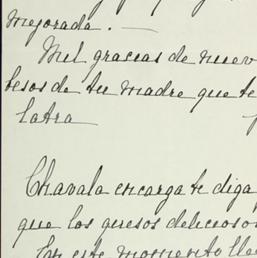 mejorada. —
Mil gracias de nuev
besos de tu madre que te
latra
Chavala encarga te diga
que los quesos delicioso
En este momento lle